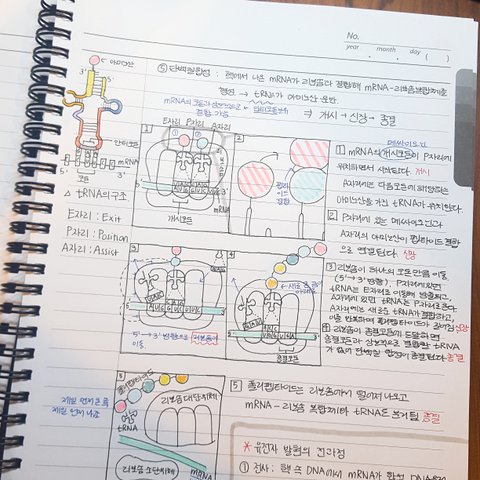 No.
year . month . day ( )
아미노산
3'
5'
안티코돈
mRNA
코돈
△ tRNA의 구조
E자리 : Exit
P자리 : Position
A자리 : Assist
⑤ 단백질합성 : 핵에서 나온 mRNA가 리보솜과 결합해 mRNA-리보솜복합체를
형성 → tRNA가 아미노산 운반.
⇒ 개시→신장→종결
E자리 P자리 A자리
1
개시코돈
mRNA
2
펩타이드 결합
메싸이오닌
1 mRNA의 개시코돈이 P자리에
위치하면서 시작된다. 개시
A자리에는 다음 코돈에 해당하는
아미노산을 가진 tRNA가 위치한다.
2 P자리에 있는 메싸이오닌과
A자리의 아미노산이 펩타이드 결합
으로 연결된다 신장
3
5'→3' 방향으로 리보솜이
이동.
4
종결코돈
3 리보솜이 하나의 코돈만큼 이동
(5'→3' 방향), P자리에 있던
tRNA는 E자리로 이동해 방출되고,
A자리에 있던 tRNA는 P자리로 온다.
A자리에는 새로운 tRNA가 결합하고,
신장
4 리보솜이 종결코돈에 도달하면
종결코돈과 상보적으로 결합할 tRNA
가 없어 단백질 합성이 종결된다. 종결
제일 먼저 나옴
5
폴리펩타이드
tRNA
리보솜 대단위체
리보솜 소단위체
mRNA
5 폴리펩타이드는 리보솜에서 떨어져 나오고
mRNA - 리보솜 복합체와 tRNA도 분리됨 종결
* 유전자 발현의 전과정
① 전사 : 핵 속 DNA에서 mRNA가 합성